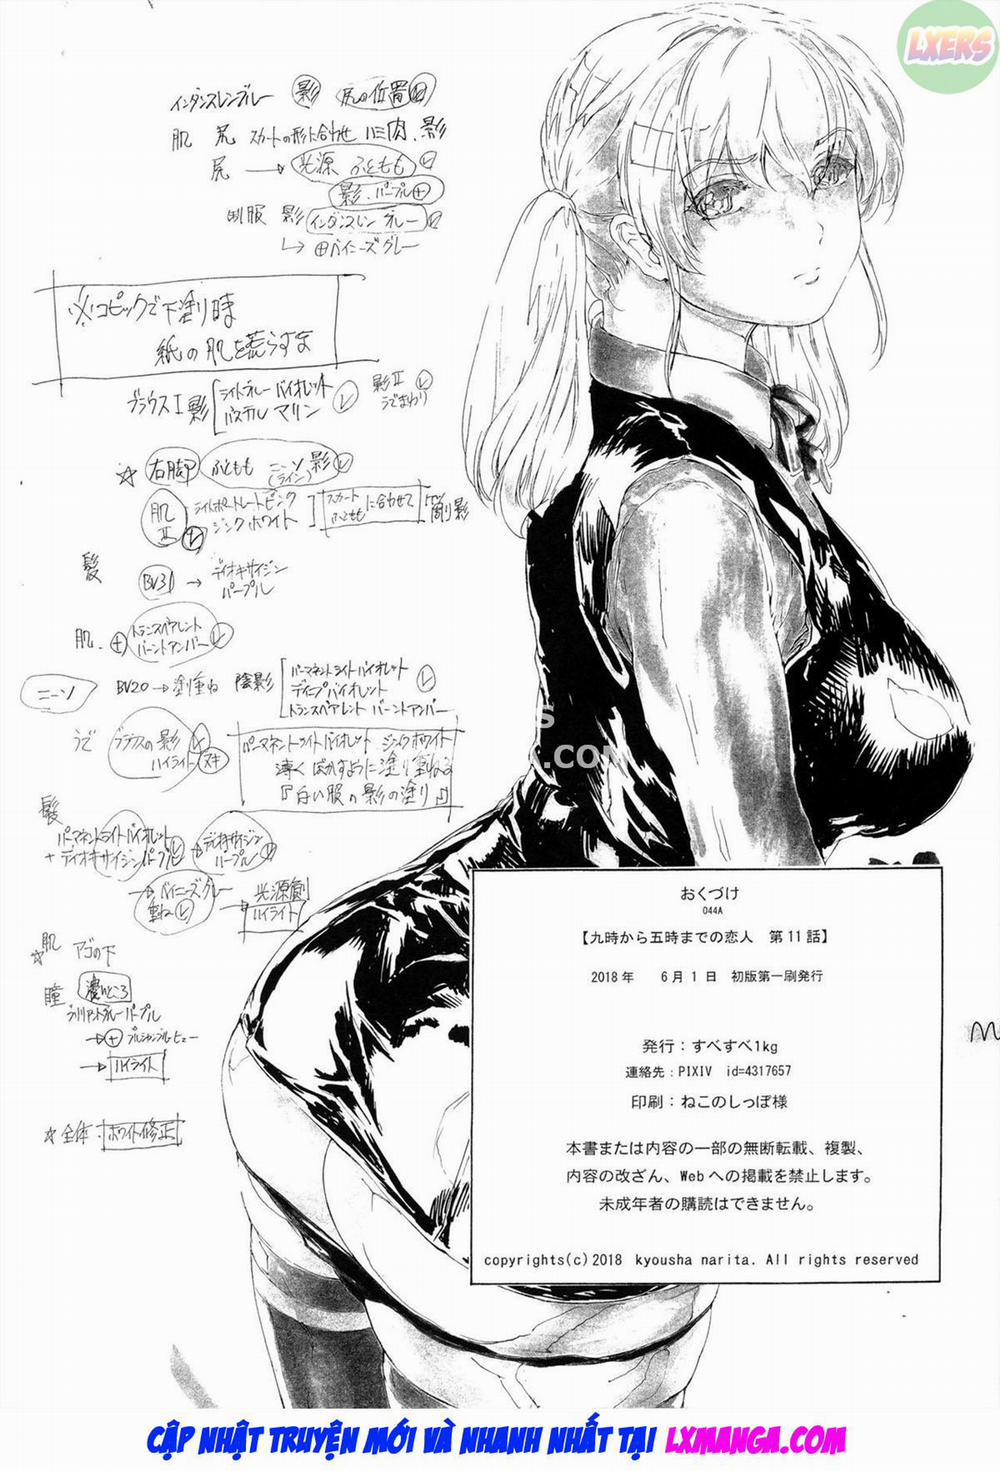 LXERS
インダンスレンブルー 影 尻の位置
肌 尻 スカートの形に合わせ ハミ肉、影
尻 → 光源 ふともも
影・パープル+
制服 影 インダンスレンブルー
↳ ⊕ペイニーズグレー
※コピックで下塗り時
紙の肌を荒らすな
ブラウス I 影 ライトブルーバイオレット
パステルマリン
影II
うでまわり
☆ 右脚 ふともも ニーソ影
(ライン)
肌 II ライトポートレートピンク
ジンクホワイト
スカート
ふとももに合わせて
髪 BV31 → ディオキサイジン
パープル
肌. ⊕ トランスペアレント
バーントアンバー
ニーソ BV20 → 塗り重ね 陰影 パーマネントライトバイオレット
ディープバイオレット
トランスペアレント バーントアンバー
うで ブラウスの影
ハイライト ヌキ
パーマネントライトバイオレット ジンクホワイト
薄くぼかすように塗り重ねる
『白い服の影の塗り』
髪
パーマネントライトバイオレット
+ディオキサイジンパープル
ディオキサイジン
パープル
→ペイニーズグレー
重ね
光源側
ハイライト
☆肌 アゴの下
瞳 濃いところ
ブリリアントブルーパープル
→⊕ プルシャンブルーヒュー
→ハイライト
☆全体・ホワイト修正
おくづけ
044A
【九時から五時までの恋人 第11話】
2018年 6月1日 初版第一刷発行
発行：すべすべ1kg
連絡先：PIXIV id=4317657
印刷：ねこのしっぽ様
本書または内容の一部の無断転載、複製、
内容の改ざん、Webへの掲載を禁止します。
未成年者の購読はできません。
copyrights(c)2018 kyousha narita. All rights reserved
CẬP NHẬT TRUYỆN MỚI VÀ NHANH NHẤT TẠI LXMANGA.COM